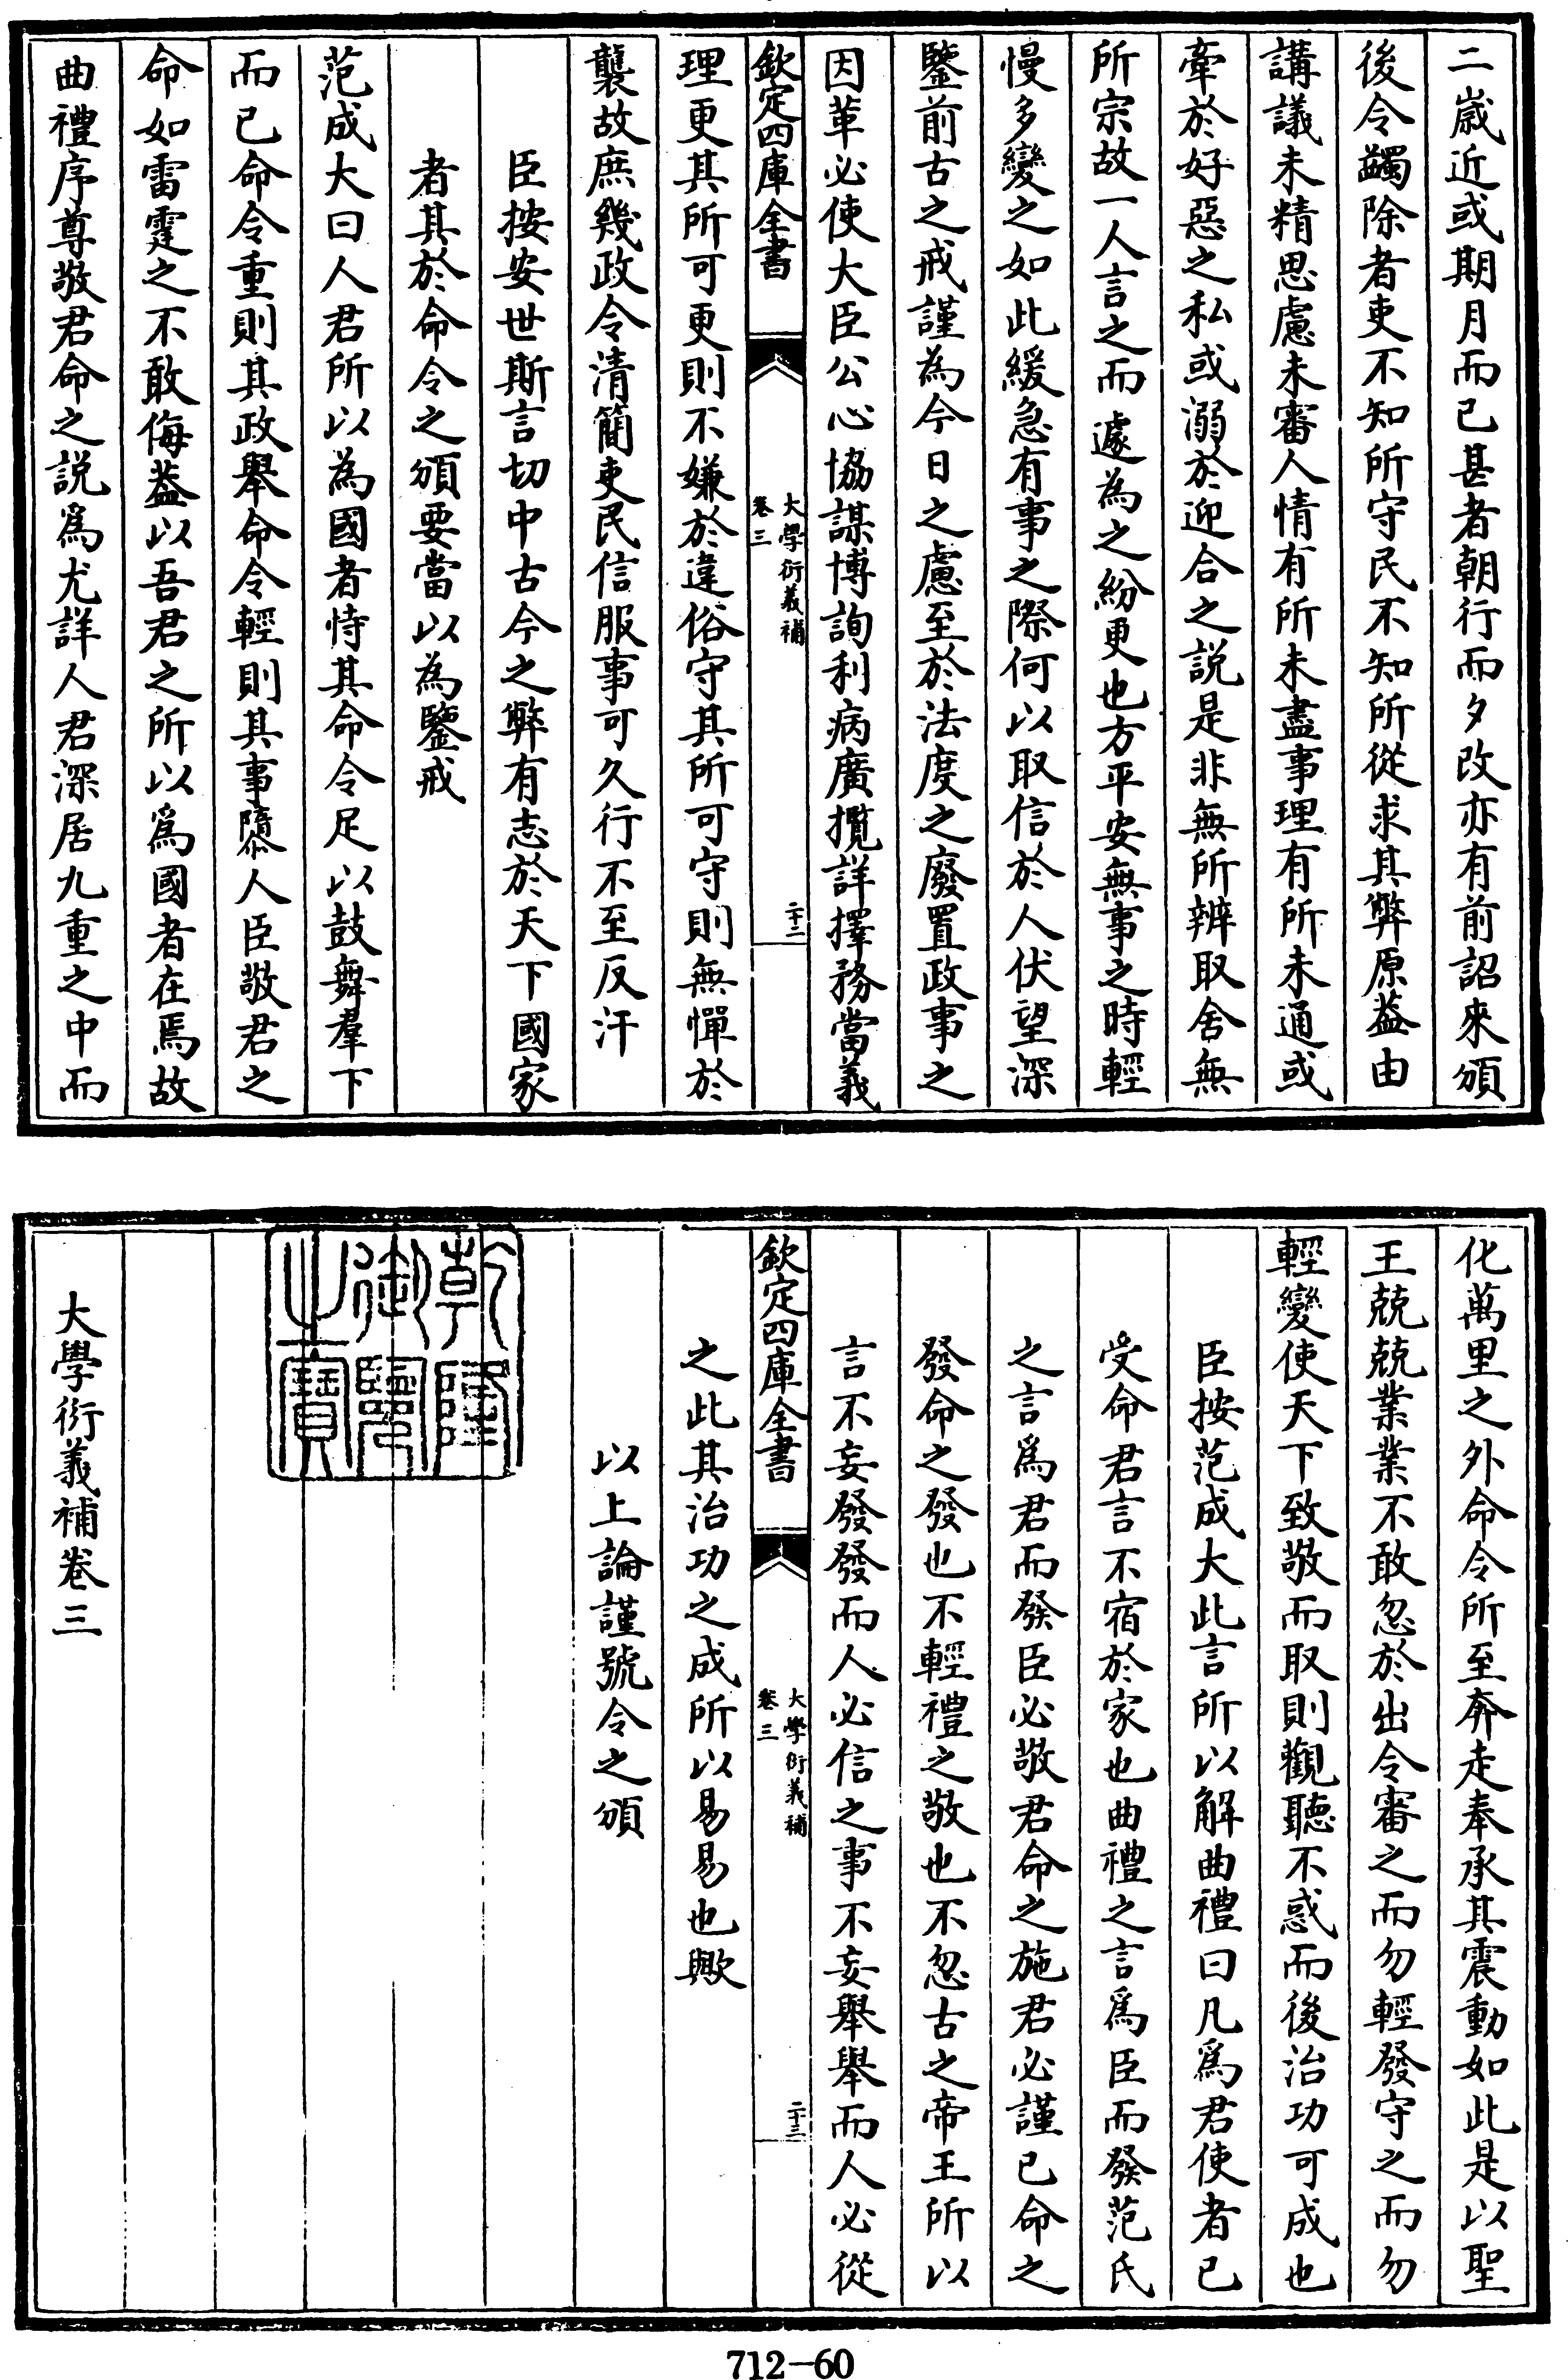 二嵗近或期月而已甚者朝行而夕改亦有前詔來頒
後令蠲除者吏不知所守民不知所從求其弊原葢由
講議未精思慮未審人情有所未盡事理有所未通或
牽於好惡之私或溺於迎合之説是非無所辨取舍無
所宗故一人言之而遽為之紛更也方平安無事之時輕
慢多變之如此緩急有事之際何以取信於人伏望深
鑒前古之戒謹為今日之慮至於法度之廢置政事之
因革必使大臣公心協謀博詢利病廣攬詳擇務當義
欽定四庫全書
大學衍義補
卷三
二十二
理更其所可更則不嫌於違俗守其所可守則無憚於
襲故庶幾政令清簡吏民信服事可久行不至反汗
臣按安世斯言切中古今之弊有志於天下國家
者其於命令之頒要當以為鑒戒
范成大曰人君所以為國者恃其命令足以鼓舞羣下
而已命令重則其政舉命令輕則其事隳人臣敬君之
命如雷霆之不敢侮葢以吾君之所以爲國者在焉故
曲禮序尊敬君命之説爲尤詳人君深居九重之中而
化萬里之外命令所至奔走奉承其震動如此是以聖
王兢兢業業不敢忽於出令審之而勿輕發守之而勿
輕變使天下致敬而取則觀聽不惑而後治功可成也
臣按范成大此言所以解曲禮曰凡爲君使者已
受命君言不宿於家也曲禮之言爲臣而發范氏
之言爲君而發臣必敬君命之施君必謹已命之
發命之發也不輕禮之敬也不忽古之帝王所以
言不妄發發而人必信之事不妄舉舉而人必從
欽定四庫全書
大學衍義補
卷三
二十三
之此其治功之成所以易易也歟
以上論謹號令之頒
乾隆
御覽
之寶
大學衍義補卷三
712-60